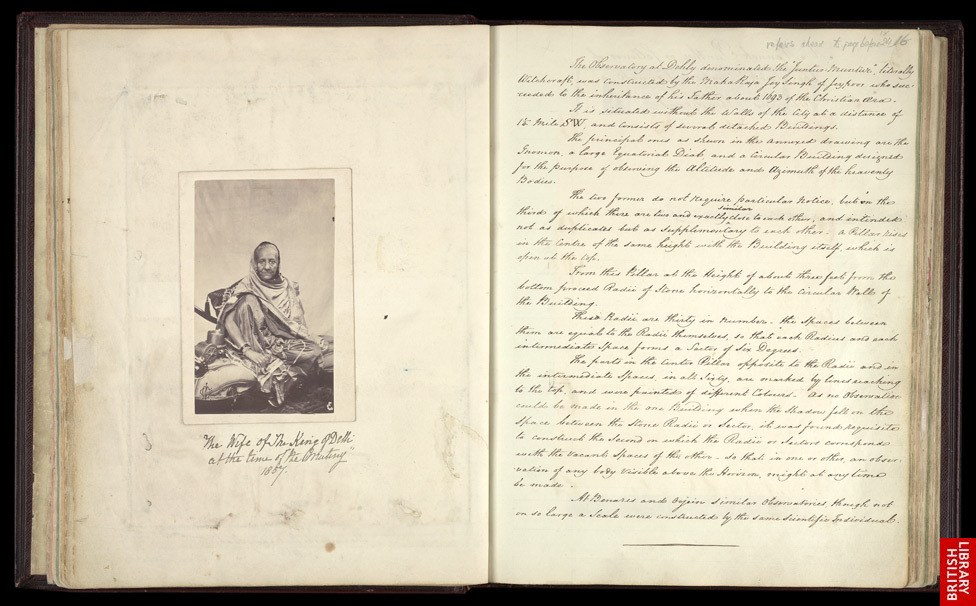 "The Wife of The King of Delhi
at the time of the Mutiny"
1857.
16
The Observatory at Dehly denominated the "Junter Muntur", literally
Witchcraft, was constructed by the Maha Raja Jey Singh of Jeypoor who suc-
ceeded to the inheritance of his Father about 1693 of the Christian Æra.
It is situated without the Walls of the City at a distance of
1¼ Mile SW. and consists of several detached Buildings.
The principal ones as shewn in the annexed drawing are the
Gnomon, a large Equatorial Dial, and a Circular Building designed
for the purpose of observing the Altitude and Azimuth of the heavenly
Bodies.
The two former do not require particular Notice, but on the
similar
thirds of which there are two and exactly close to each other, and intended
not as duplicates but as Supplementary to each other - a Pillar rises
in the Centre of the same height with the Building itself, which is
open at the top.
From this Pillar at the Height of about three feet from the
bottom proceed Radii of Stone horizontally to the circular Walls of
the Building.
These Radii are thirty in number - the Spaces between
them are equal to the Radii themselves, so that each Radius and each
intermediate Space forms a Sector of Six Degrees.
The parts in the Center Pillar opposite to the Radii and in
the intermediate Spaces, in all Sixty, are marked by lines reaching
to the top, and were painted of different Colours. As no Observation
could be made in the one Building when the Shadow fell on the
Space between the Stone Radii or Sector, it was found requisite
to construct the Second in which the Radii or Sectors correspond
with the vacant Spaces of the other - so that in one or other, an obser-
vation of any body visible above the Horizon, might at any time
be made.
At Benares and Oojein similar Observatories, though not
on so large a Scale were constructed by the same Scientific Individual.
BRITISH
LIBRARY